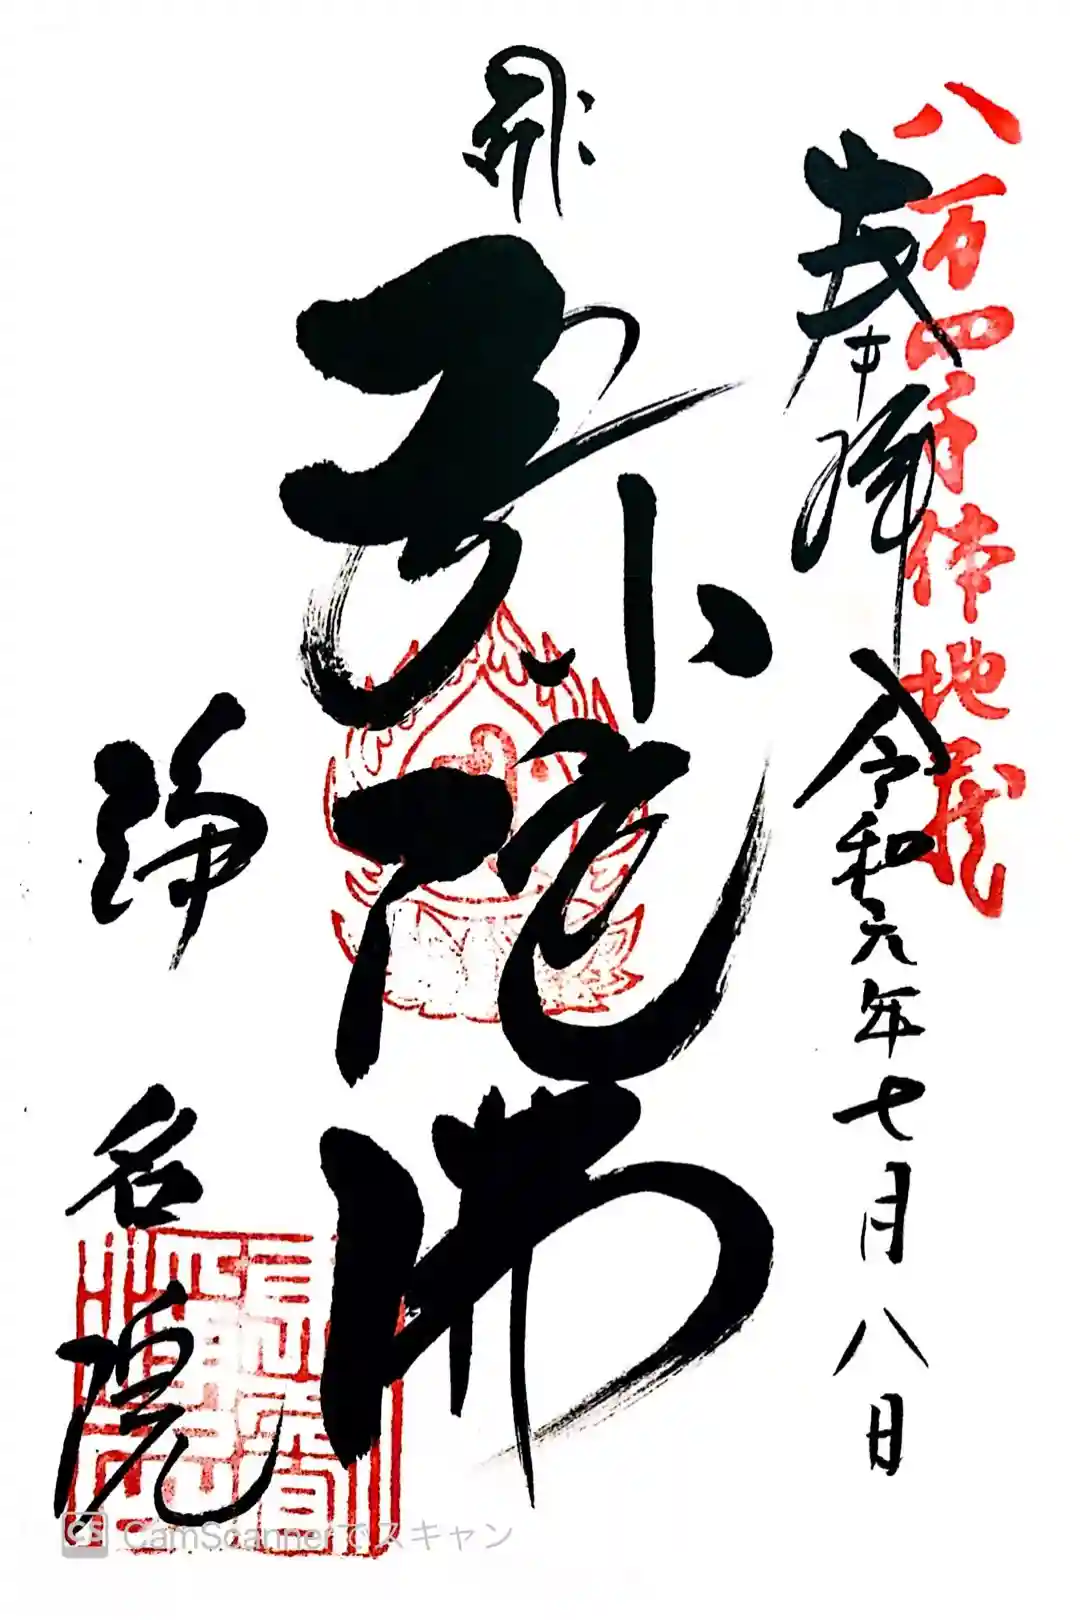 八万四千体地蔵
奉拝 令和元年七月八日
弥陀佛
浄名院
CS CamScannerでスキャン